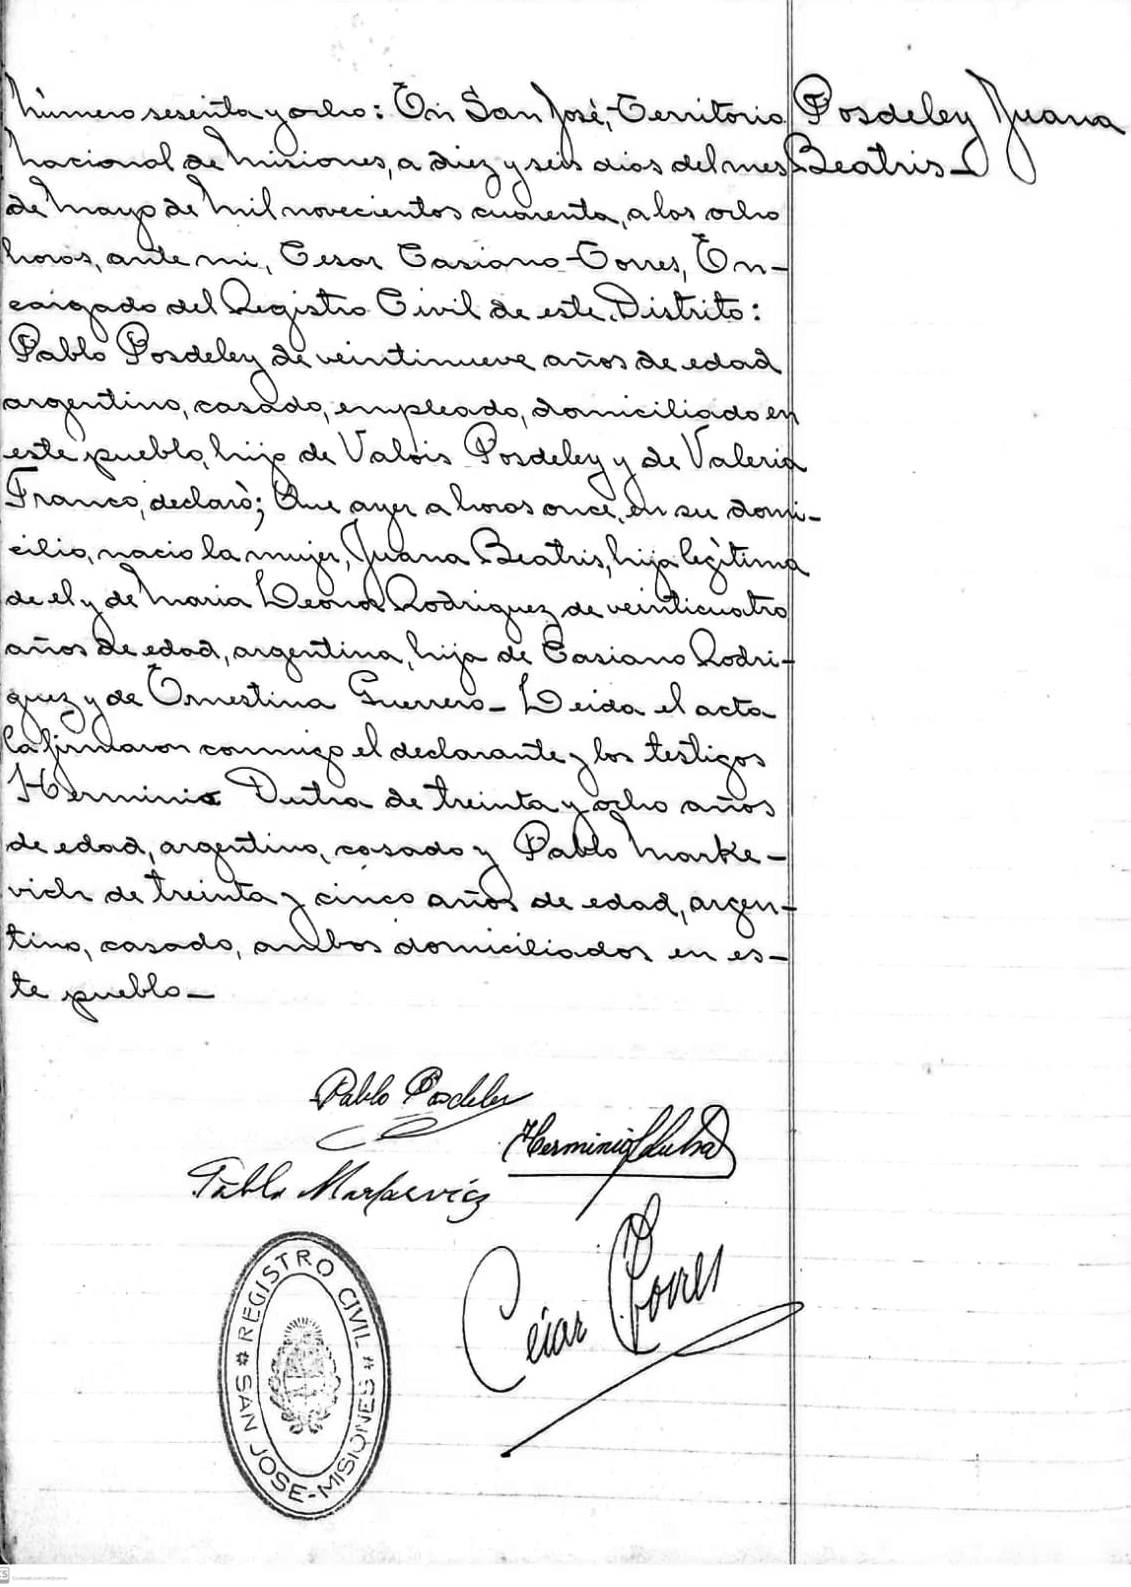 Número sesenta y ocho: En San José, Territorio
Posdeley Juana
Nacional de Misiones, a diez y seis dias del mes
Beatris—
de Mayo de Mil novecientos cuarenta, a las ocho
horas, ante mi, Cesar Casiano Torres, En-
cargado del Registro Civil de este Distrito:
Pablo Posdeley de veintinueve años de edad
argentino, casado, empleado, domiciliado en
este pueblo, hijo de Valois Posdeley y de Valeria
Franco, declaró; Que ayer a horas once, en su domi-
cilio, nacio la mujer, Juana Beatris, hija legítima
de el y de Maria Leonor Rodriguez de veinticuatro
años de edad, argentina, hija de Casiano Rodri-
guez y de Ernestina Guerrero— Leida el acta
la firmaron conmigo el declarante y los testigos
Herminio Dutra de treinta y ocho años
de edad, argentino, casado y Pablo Marke-
vich de treinta y cinco años de edad, argen-
tino, casado, ambos domiciliados en es-
te pueblo—
Pablo Posdeley
Herminio Dutra
Pablo Markevicz
Cesar Torres
REGISTRO CIVIL
SAN JOSE-MISIONES